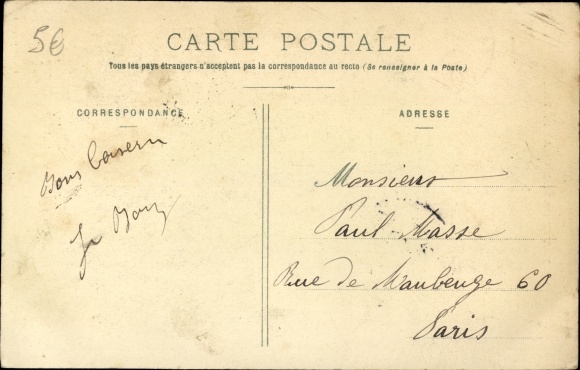 5€
CARTE POSTALE
Tous les pays étrangers n'acceptent pas la correspondance au recto (Se renseigner à la Poste)
CORRESPONDANCE
ADRESSE
Monsieur
Paul Masse
Rue de Maubeuge 60
Paris